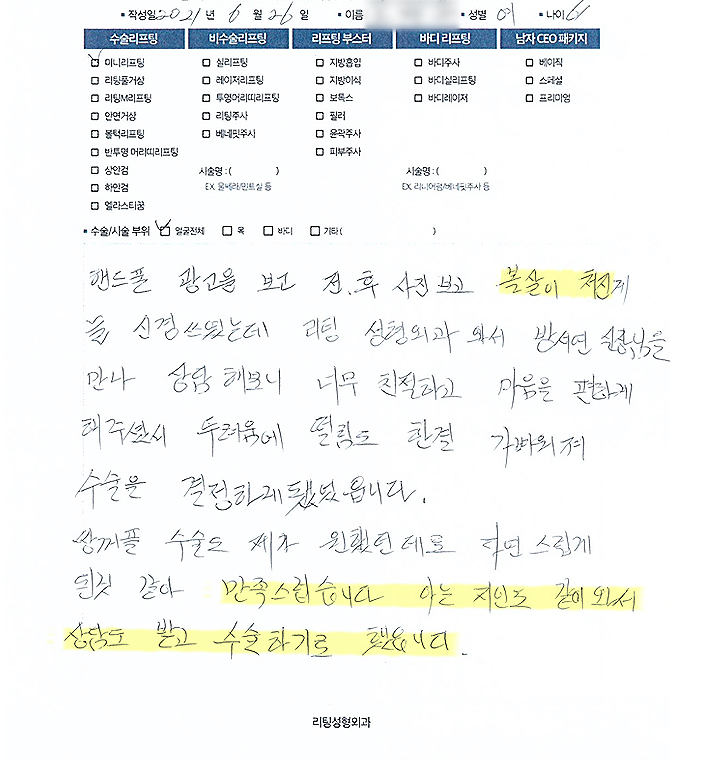 • 작성일 2021 년 6 월 26 일 • 이름 • 성별 여 • 나이 61
수술리프팅 비수술리프팅 리프팅 부스터 바디 리프팅 남자 CEO 패키지
미니리프팅 실리프팅 지방흡입 바디주사 베이직
리팅풀거상 레이저리프팅 지방이식 바디실리프팅 스페셜
리팅M리프팅 투명어리띠리프팅 보톡스 바디레이저 프리미엄
안면거상 리팅주사 필러
볼턱리프팅 베네핏주사 윤곽주사
반투명 머리띠리프팅 피부주사
상안검 시술명 : ( ) 시술명 : ( )
하안검 EX. 울쎄라/민트실 등 EX. 리니어펌/베네핏주사 등
엘라스티꿈
• 수술/시술 부위 얼굴전체 목 바디 기타 ( )
핸드폰 광고을 보고 전.후 사진 보고 볼살이 처진게
늘 신경쓰였는데 리팅 성형외과 와서 방서연 실장님을
만나 상담 해보니 너무 친절하고 마음을 편하게
해주셔서 두려움에 떨림도 한결 가벼워져
수술을 결정하게됐었읍니다.
쌍꺼플 수술도 제가 원했던데로 자연스럽게
된것 같아 만족스럽습니다 아는 지인도 같이와서
상담도 받고 수술하기로 했읍니다.
리팅성형외과